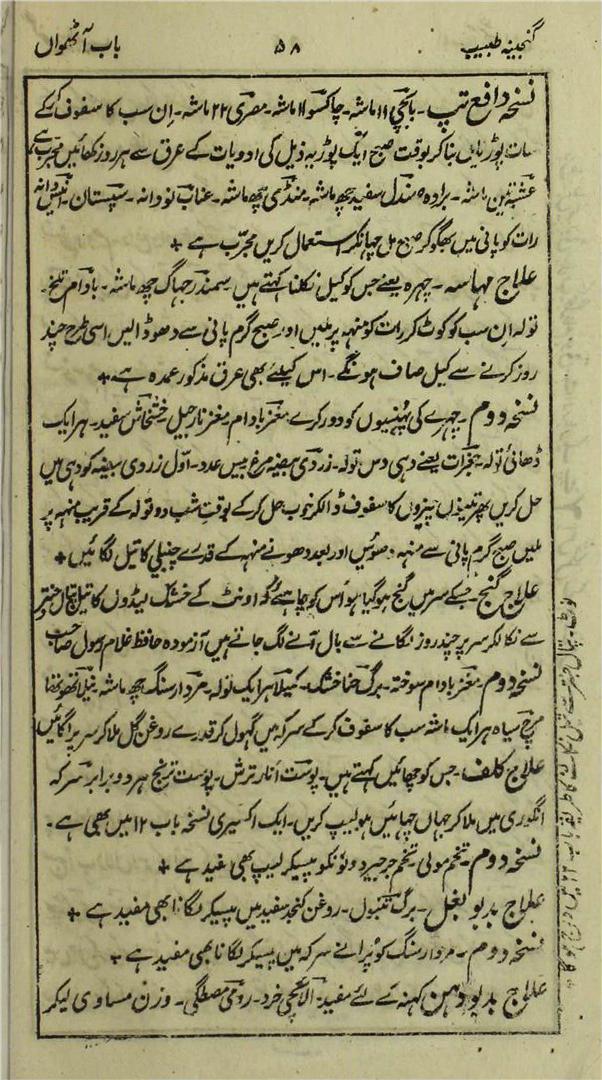 گنجینہ طبیب ۵۸ باب آٹھواں
نسخہ دافع تپ۔ بابچی ۱۱ ماشہ۔ چاکسو ۱۱ ماشہ۔ مصری ۲۲ ماشہ۔ اِن سب کا سفوف کرکے
سات پوڑیاں بنا کر بوقت صبح ایک پوڑیہ ذیل کی ادویات کے عرق سے ہر روز کھائیں مجرب ہے
عشبہ تین ماشہ۔ برادہ صندل سفید چھ ماشہ۔ منڈی چھ ماشہ۔ عناب نو دانہ۔ سپستان۔
رات کو پانی میں بھگو کر صبح مل چھانکر استعمال کریں مجرّب ہے +
علاج مہاسہ۔ چہرہ یعنے جس کو کیل نکلنا کہتے ہیں سمندر جھاگ چھ ماشہ۔ بادام تلخ۔
تولہ ان سب کو کوٹ کر رات کو منہہ پر ملیں اور صبح گرم پانی سے دھو ڈالیں اسی طرح چند
روز کرنے سے کیل صاف ہونگے۔ اس کیلئے بھی عرق مذکور عمدہ ہے +
نسخہ دوم۔ چہرے کی پھنسیوں کو دور کرے مغز بادام مغز نارجیل۔ خشخاش سفید۔ ہر ایک
ڈھائی تولہ۔ جغرات یعنے دہی دس تولہ۔ زردی بیضہ مرغ بیس عدد۔ اوّل زردی بیضہ کو دہی میں
حل کریں پھر تینوں چیزوں کا سفوف ڈالکر خوب حل کرکے بوقت شب دو تولہ کے قریب منہہ پر
ملیں صبح گرم پانی سے منہہ دھوئیں اور بعد دھونے منہہ کے قدرے چنبیلی کا تیل لگائیں +
علاج گنج۔ جسکے سر میں گنج ہو گیا ہو اُس کو چاہئے کہ اونٹ کے خشک لیڈوں کا تیل پتال جنتر
سے نکالکر سر پر چند روز لگانے سے بال آنے لگ جاتے ہیں آزمودہ حافظ غلام رسول صاحب
نسخہ دوم۔ مغز بادام سوختہ۔ برگ حنا خشک۔ کمیلا ہر ایک تولہ۔ مردار سنگ چھ ماشہ۔ نیلا تھوتھا
مرچ سیاہ ہر ایک ماشہ سب کا سفوف کرکے سرکہ میں گھول کر قدرے روغن گل ملا کر سر پر لگائیں
علاج کلف۔ جس کو چھائیں کہتے ہیں۔ پوست انار ترش۔ پوست ترنج ہر دو برابر سرکہ
انگوری میں ملا کر جہاں چھائیں ہو لیپ کریں۔ ایک اکسیری نسخہ باب ۱۲ میں بھی ہے۔
نسخہ دوم۔ تخم مولی۔ تخم جرجیر دونوں کو پیسکر لیپ بھی مفید ہے +
علاج بدبو بغل۔ برگ تنبول۔ روغن کنجد سفید میں پیسکر لگانا بھی مفید ہے +
نسخہ دوم۔ مردار سنگ کو پرانے سرکہ میں پیسکر لگانا بھی مفید ہے +
علاج بدبو دہن کہنہ کے لئے مفید۔ الائچی خرد۔ رومی مصطگی۔ وزن مساوی لیکر